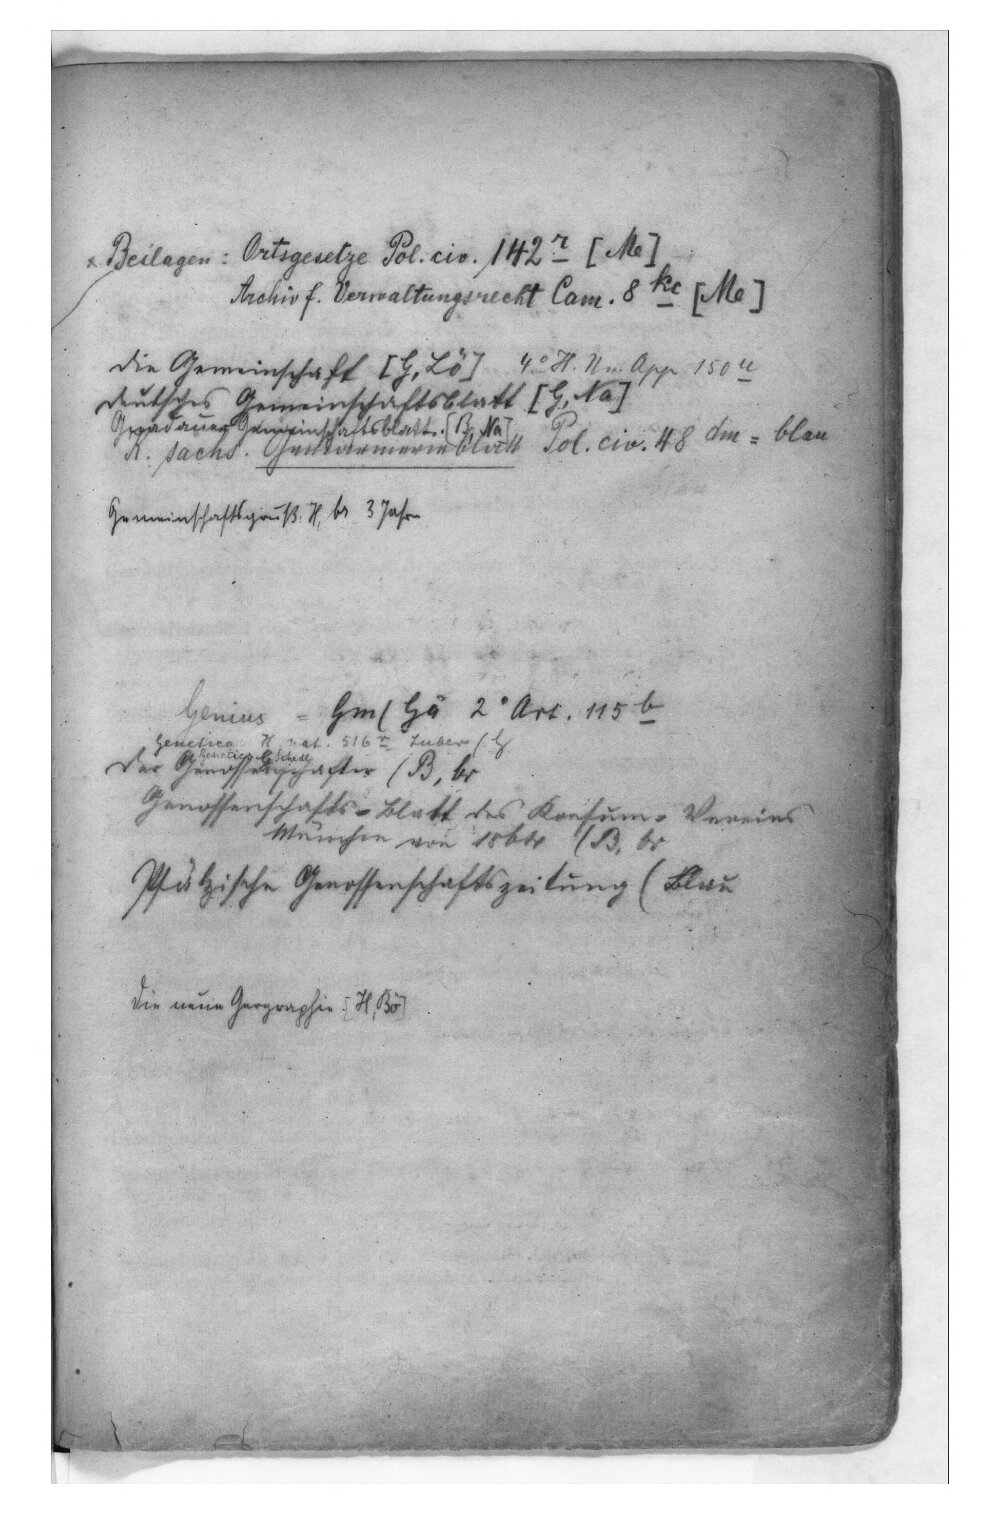 x Beilagen: Ortsgesetze Pol. civ. 142 r [Me]
Archiv f. Verwaltungsrecht Cam. 8 kc [Me]
Die Gemeinschaft [G, Lö] 4° H. N u. App. 150 u
Deutsches Gemeinschaftsblatt [G, Na]
Gemeinschaftsblatt. [B, Na]
K. sächs. Gendarmerieblatt Pol. civ. 48 dm = blau
Gemeinschaftsgruß. H, br 3 Jahre
Genius = Gm ( Gä 2° Art. 115 b
Genetica H. nat. 516 ( G
Genetica G Schedl
Der Genossenschafter ( B, br
Genossenschafts-Blatt des Konsum-Vereins
München von 1864 ( B, br
Pfälzische Genossenschaftszeitung ( Blau
Die neue Geographie. [H, Bö]